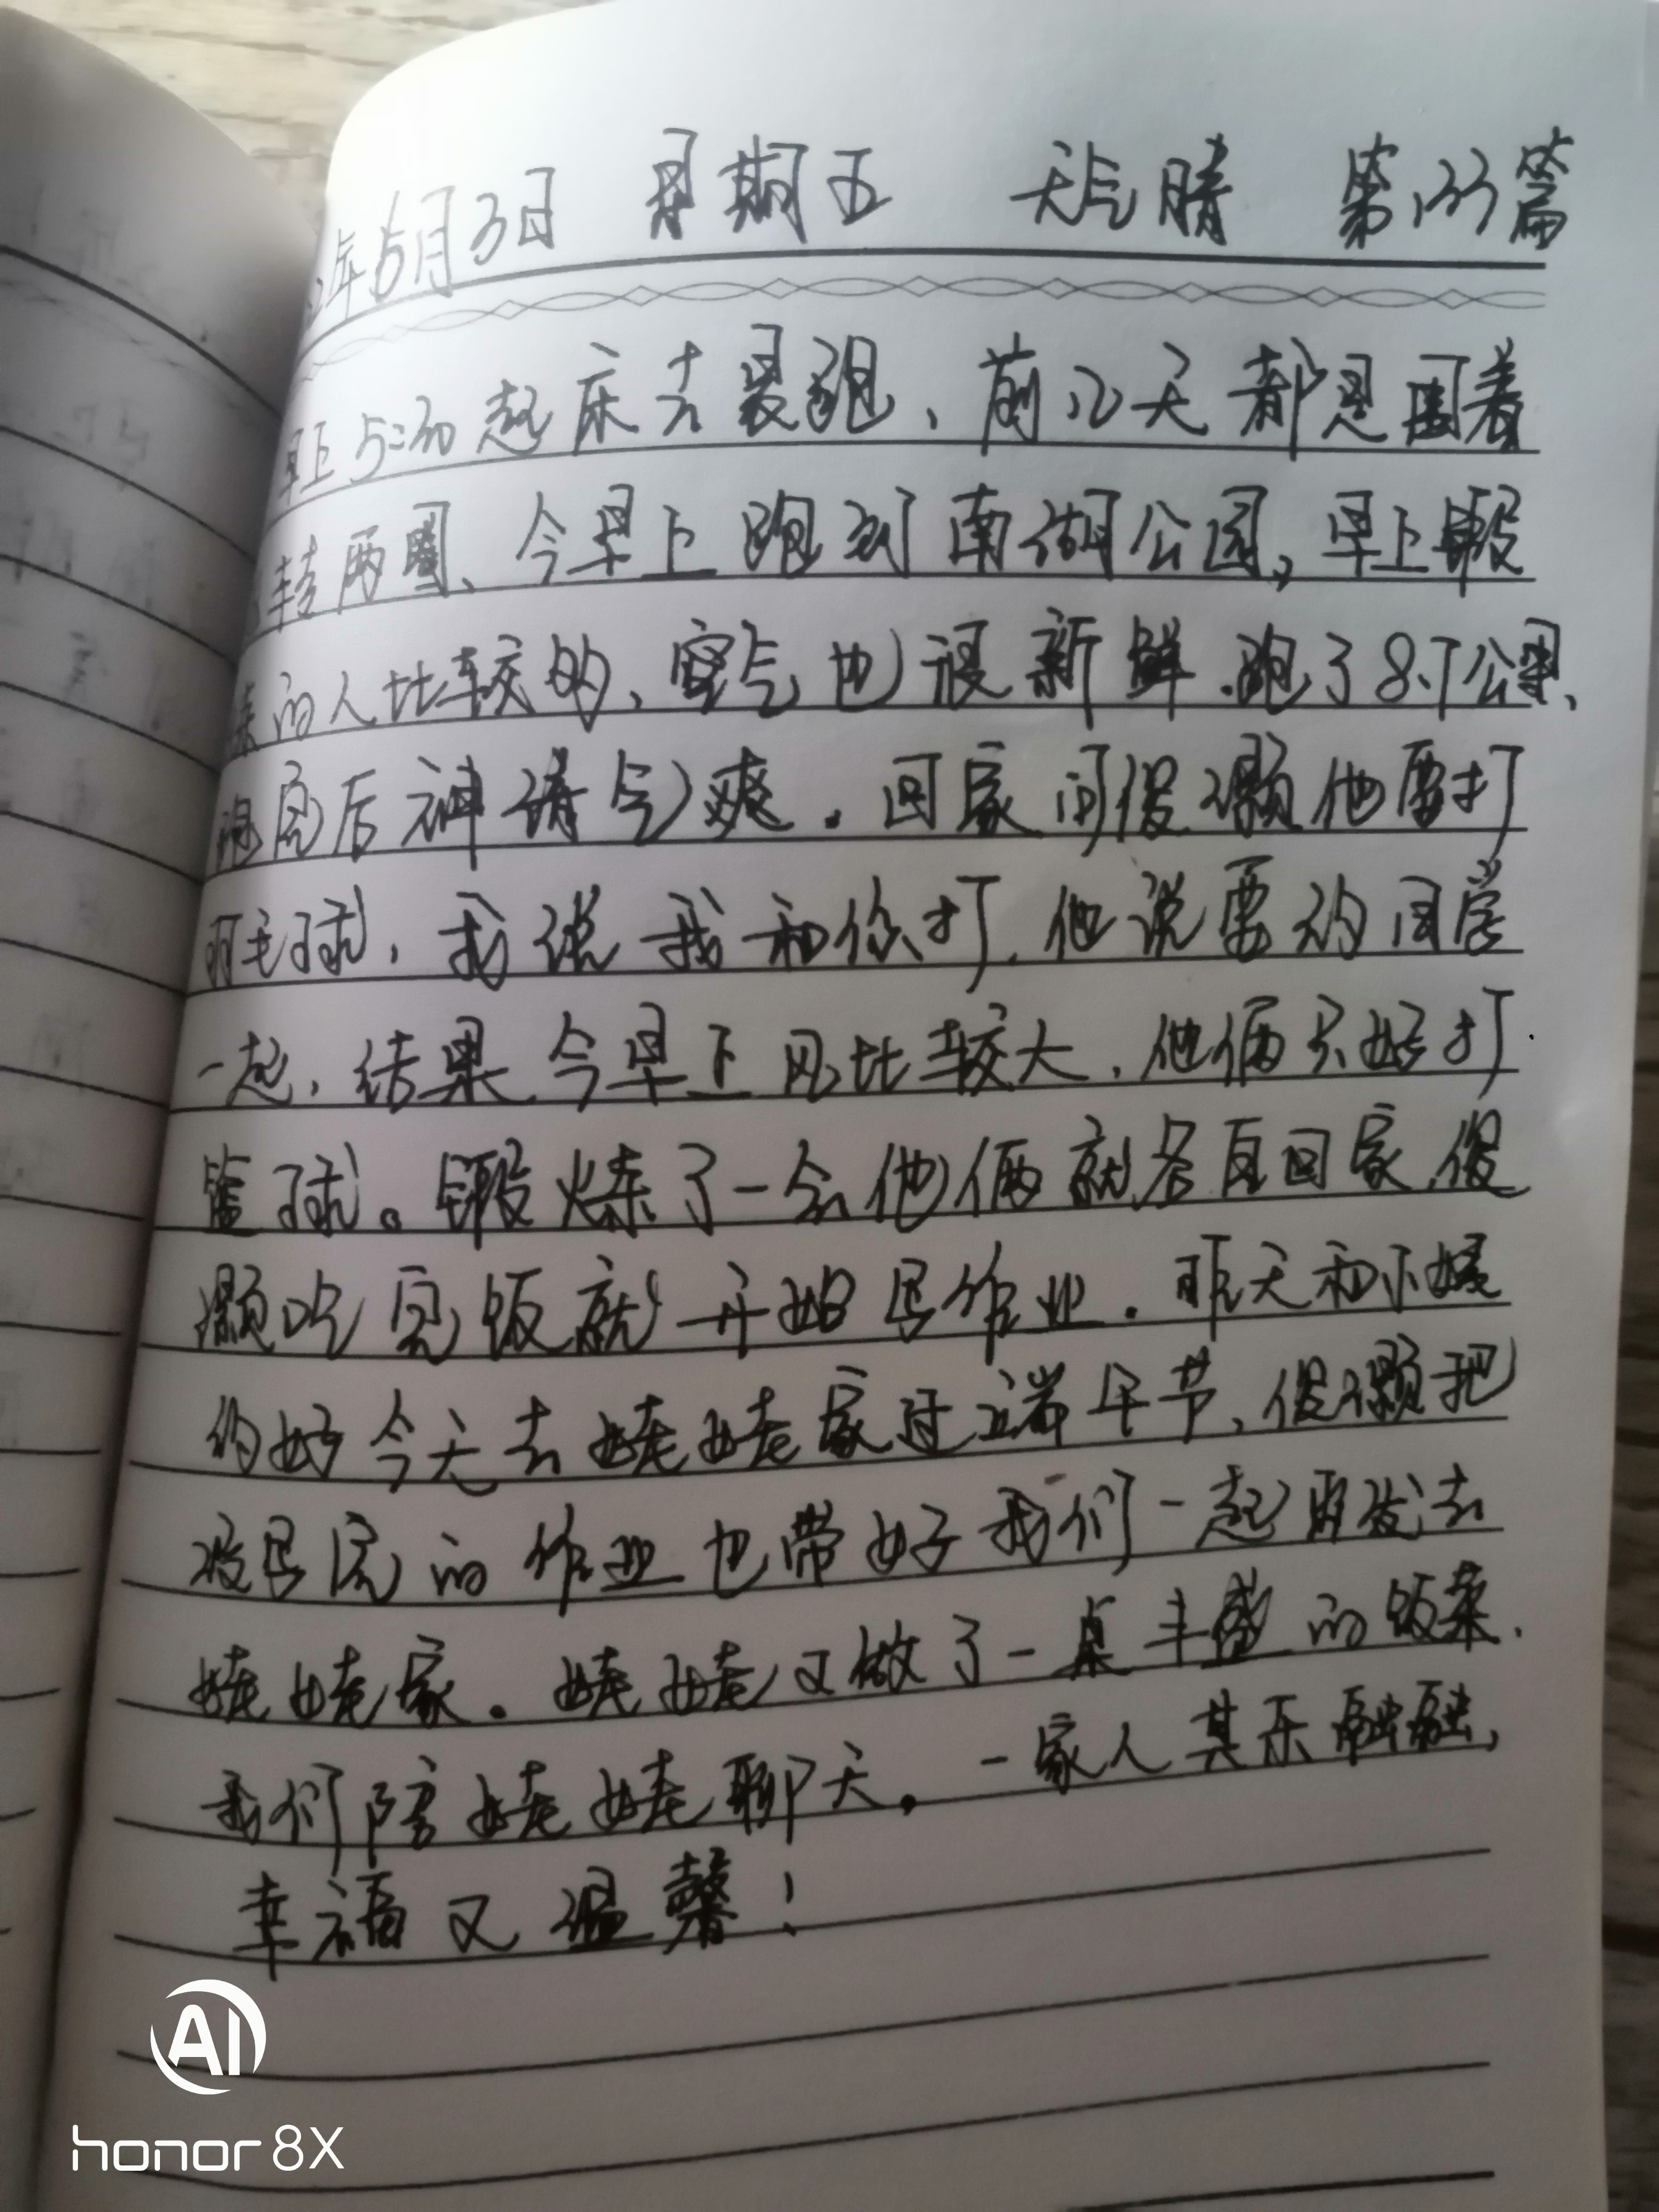 年6月3日 星期五 天气晴 第133篇
早上5:30起床去晨跑、前几天都是围着
转两圈、今早上跑到南湖公园,早上锻
炼的人比较多、空气也很新鲜.跑了8.7公里、
跑完后神清气爽。回家问俊灏他要打
羽毛球,我说我和你打,他说要约同学
一起,结果今早上风比较大,他俩只好打
篮球。锻炼了一会他俩就各自回家,俊
灏吃完饭就开始写作业.昨天和小嫂
约好今天去姥姥家过端午节、俊灏把
没写完的作业也带好我们一起出发去
姥姥家。姥姥又做了一桌丰盛的饭菜.
我们陪姥姥聊天。一家人其乐融融,
幸福又温馨!
AI
honor 8X